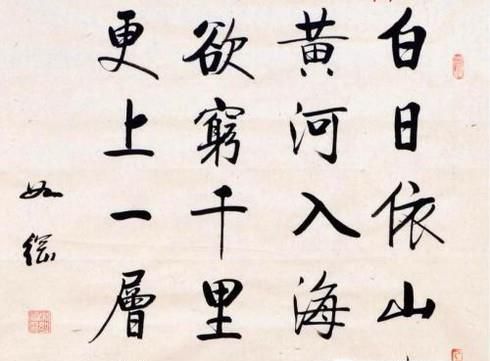 白日依山
黄河入海
欲窮千里
更上一層